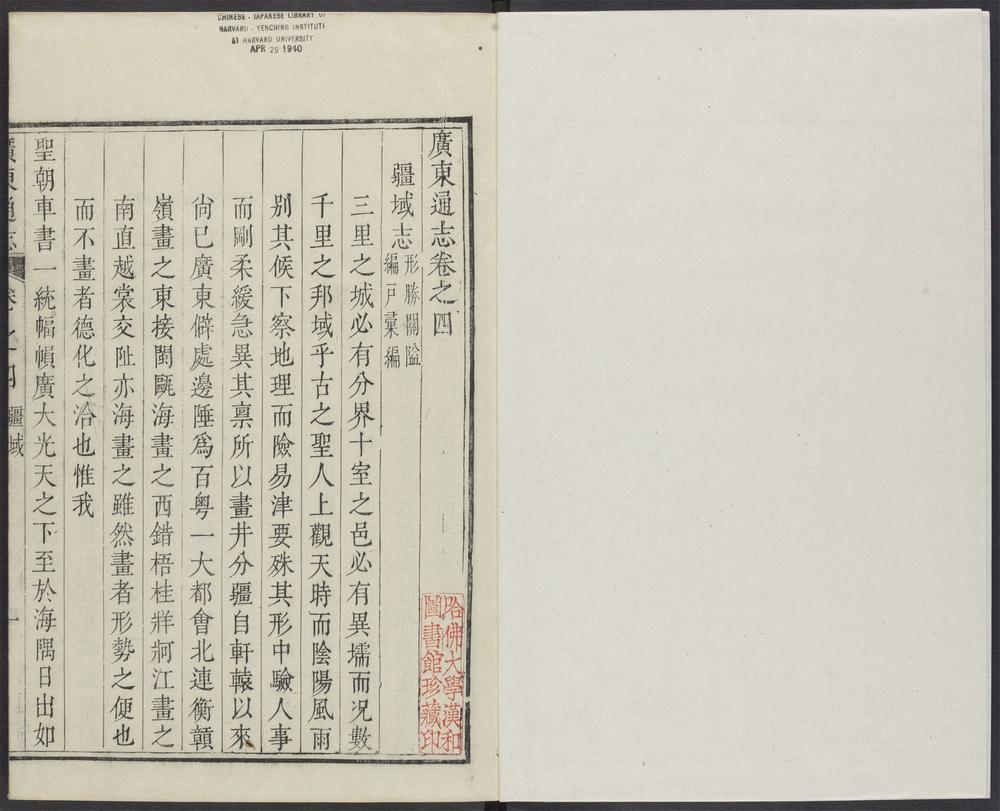 CHINESE - JAPANESE LIBRARY OF
HARVARD - YENCHING INSTITUTE
AT HARVARD UNIVERSITY
APR 29 1940
廣東通志卷之四
疆域志 形勝 關隘 編戸 彙編
三里之城必有分界十室之邑必有異壖而況數
千里之邦域乎古之聖人上觀天時而陰陽風雨
别其候下察地理而險易津要殊其形中驗人事
而剛柔緩急異其禀所以畫井分疆自軒轅以來
尙已廣東僻處邊陲爲百粤一大都會北連衡贑
嶺畫之東接閩甌海畫之西錯梧桂牂牁江畫之
南直越裳交阯亦海畫之雖然畫者形勢之便也
而不畫者德化之洽也惟我
聖朝車書一統幅幀廣大光天之下至於海隅日出如
廣東通志 卷之四 疆域 一
哈佛大學漢和
圖書館珍藏印